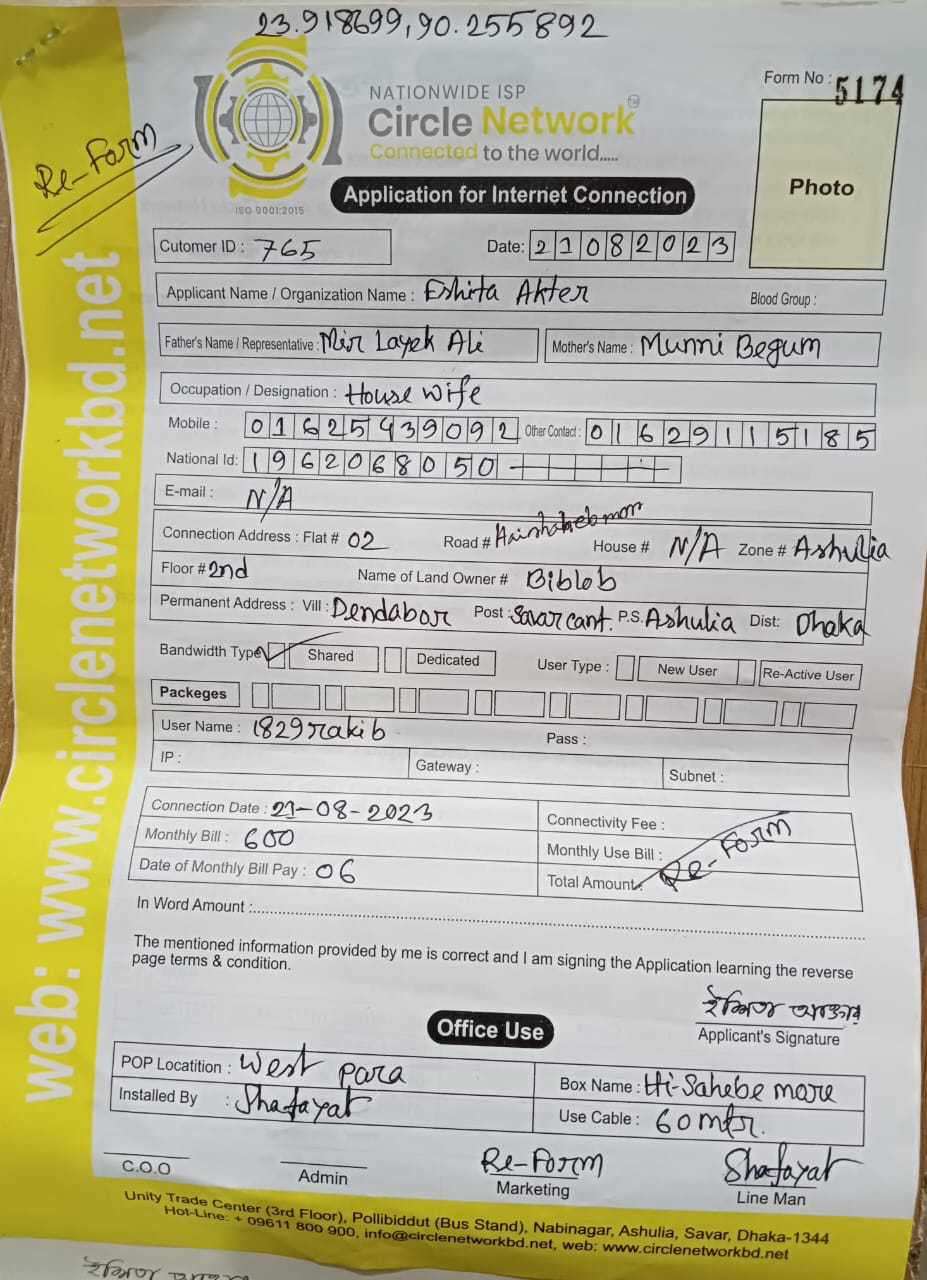 23.918699,90.255892
NATIONWIDE ISP
Circle Network
Connected to the world.....
ISO 9001:2015
Form No : 5174
Photo
Re-Form
Application for Internet Connection
Cutomer ID : 765 Date: 21082023
Applicant Name / Organization Name : Eshita Akter Blood Group :
Father's Name / Representative : Mir Layek Ali Mother's Name : Munni Begum
Occupation / Designation : House wife
Mobile : 01625439092 Other Contact : 01629115185
National Id: 1962068050
E-mail : N/A
Connection Address : Flat # 02 Road # House # N/A Zone # Ashulia
Floor # 2nd Name of Land Owner # Biblob
Permanent Address : Vill : Dendabor Post : Savar cant. P.S. Ashulia Dist: Dhaka
Bandwidth Type Shared Dedicated User Type : New User Re-Active User
Packeges
User Name : 1829rakib Pass :
IP : Gateway : Subnet :
Connection Date : 21-08-2023 Connectivity Fee :
Monthly Bill : 600 Monthly Use Bill :
Date of Monthly Bill Pay : 06 Total Amount: Re-Form
In Word Amount :
The mentioned information provided by me is correct and I am signing the Application learning the reverse
page terms & condition.
আক্তার
Applicant's Signature
Office Use
POP Locatition : West para Box Name : Hi-Sahebe more
Installed By : Shafayat Use Cable : 60 mtr.
C.O.O Admin Re-Form Shafayat
Marketing Line Man
Unity Trade Center (3rd Floor), Pollibiddut (Bus Stand), Nabinagar, Ashulia, Savar, Dhaka-1344
Hot-Line: + 09611 800 900, info@circlenetworkbd.net, web: www.circlenetworkbd.net
web: www.circlenetworkbd.net